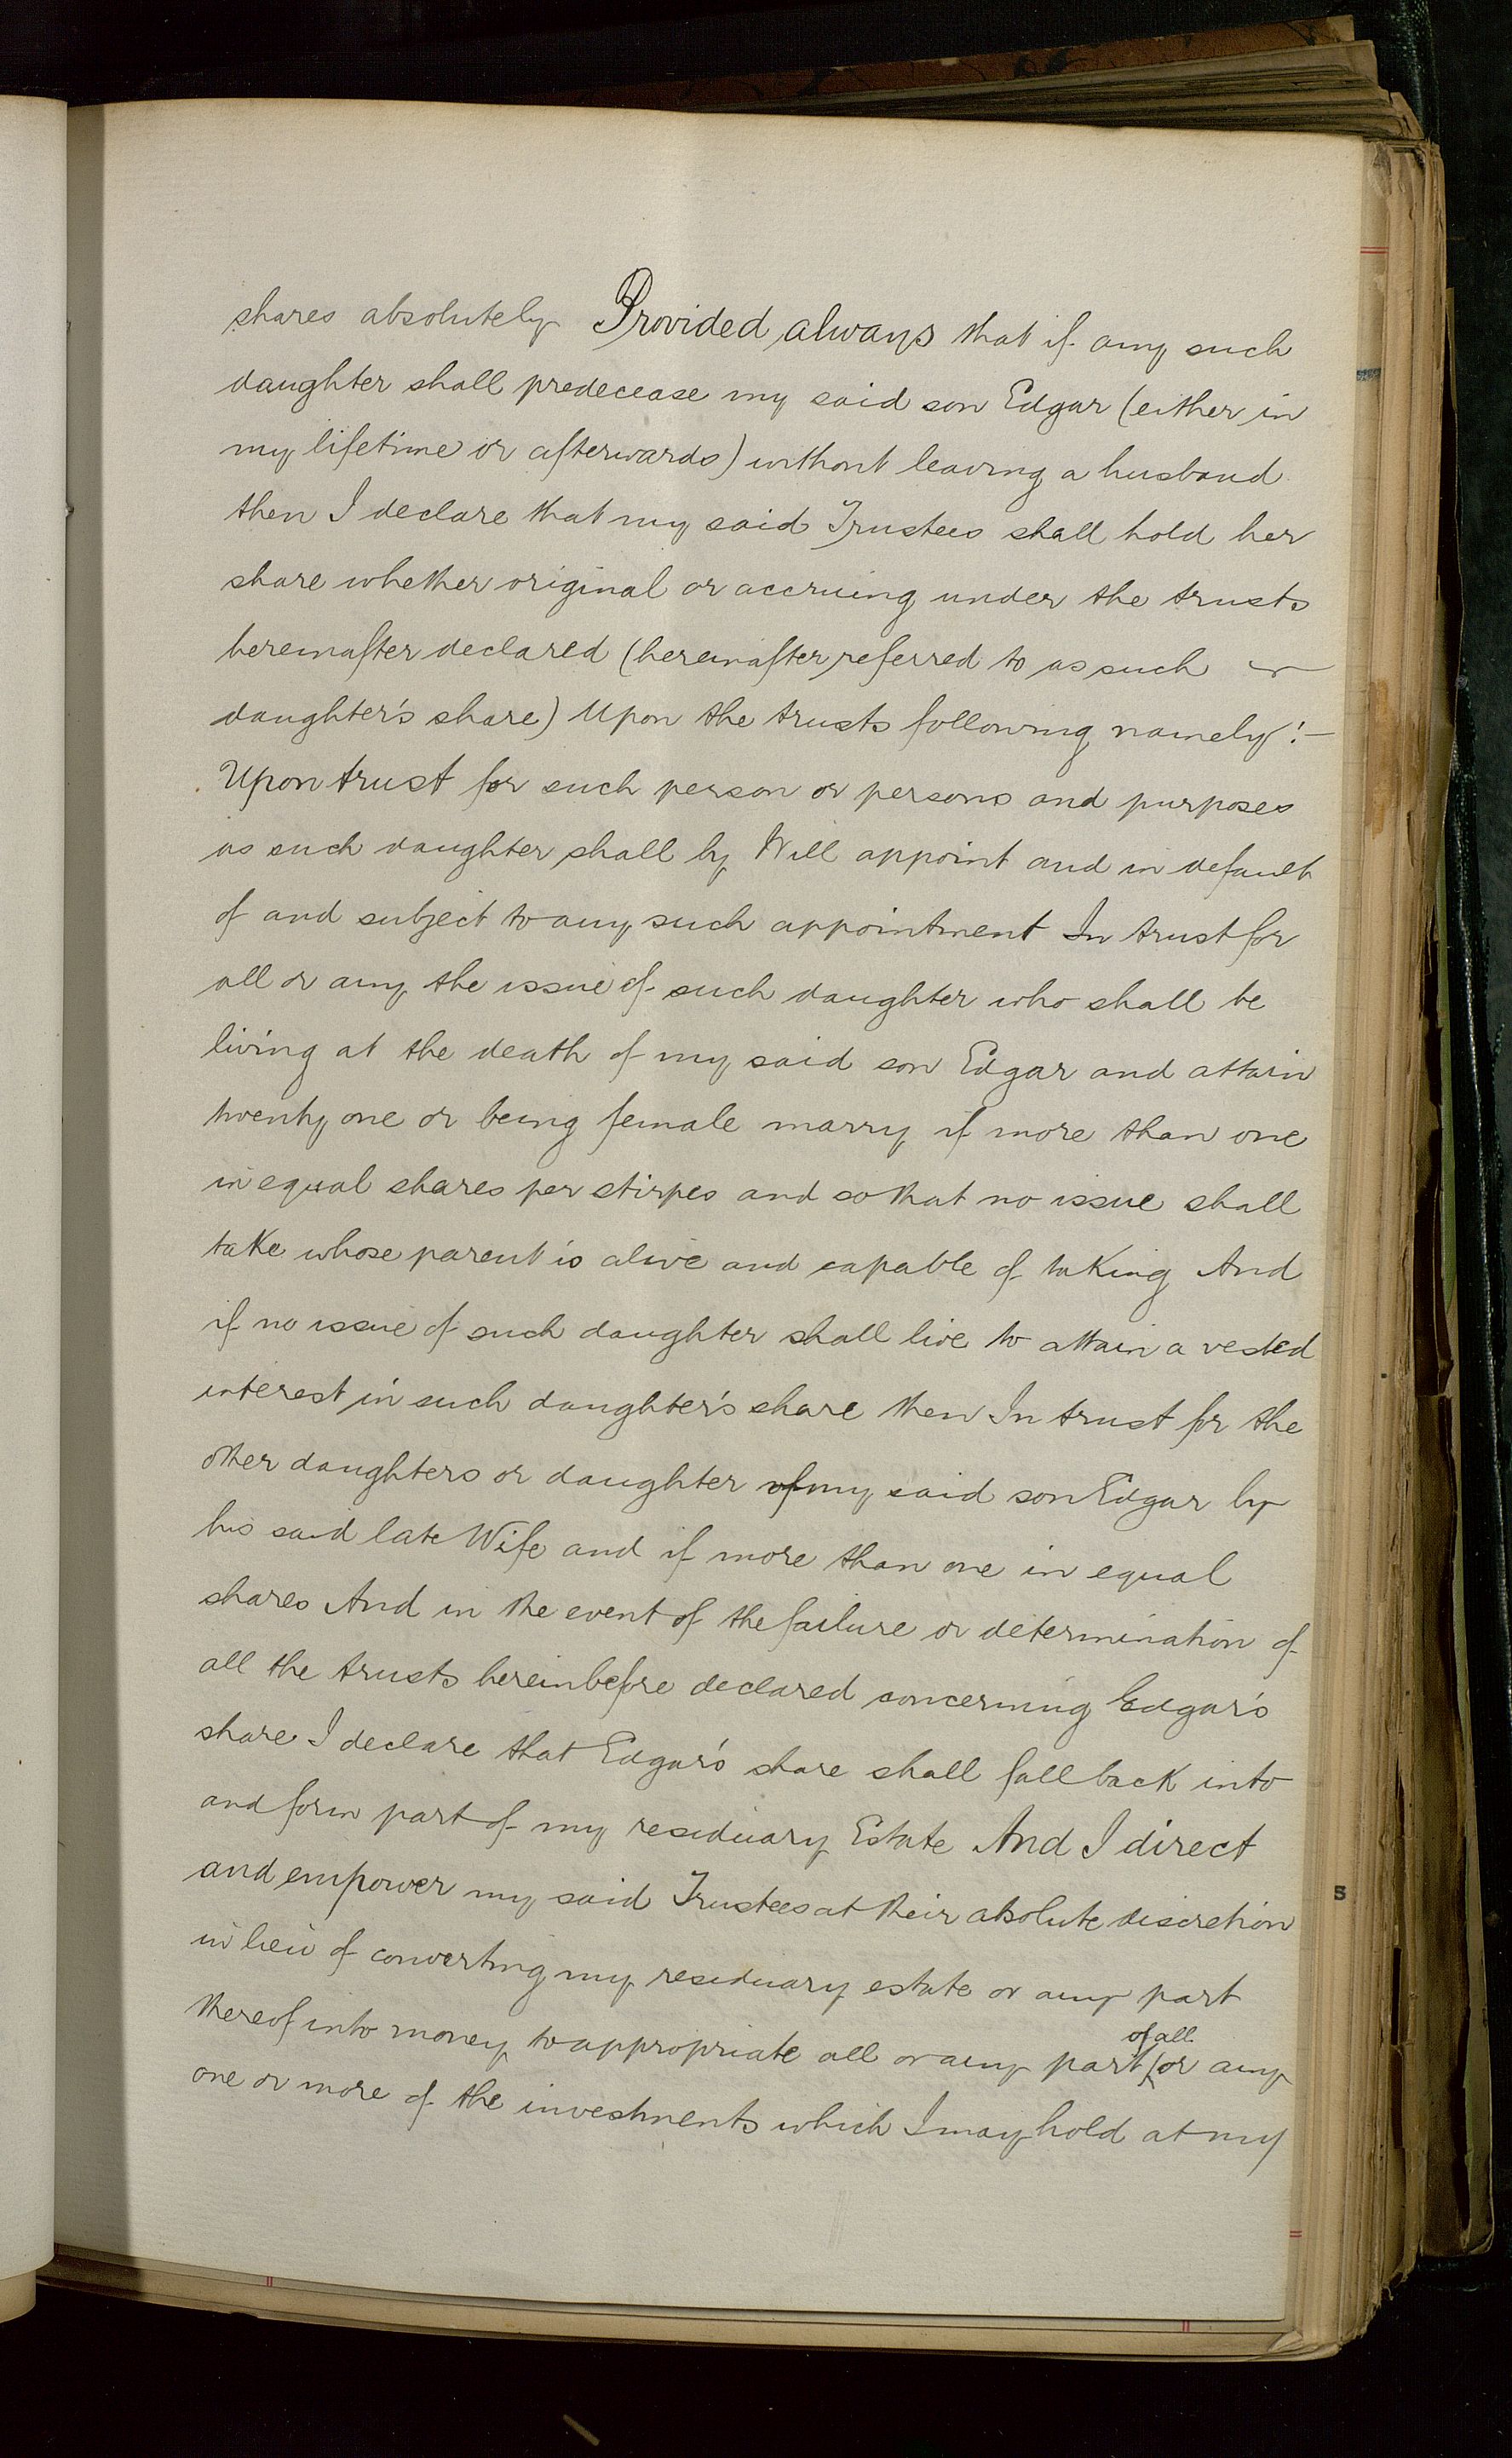 shares absolutely Provided always that if any such
daughter shall predecease my said son Edgar (either in
my lifetime or afterwards) without leaving a husband
then I declare that my said Trustees shall hold her
share whether original or accruing under the trusts
hereinafter declared (hereinafter referred to as such
daughter's share) Upon the trusts following namely:—
Upon trust for such person or persons and purposes
as such daughter shall by Will appoint and in default
of and subject to any such appointment In trust for
all or any the issue of such daughter who shall be
living at the death of my said son Edgar and attain
twenty one or being female marry if more than one
in equal shares per stirpes and so that no issue shall
take whose parent is alive and capable of taking And
if no issue of such daughter shall live to attain a vested
interest in such daughter's share then In trust for the
other daughters or daughter of my said son Edgar by
his said late Wife and if more than one in equal
shares And in the event of the failure or determination of
all the trusts hereinbefore declared concerning Edgar's
share I declare that Edgar's share shall fall back into
and form part of my residuary Estate And I direct
and empower my said Trustees at their absolute discretion
in lieu of converting my residuary estate or any part
of all
thereof into money to appropriate all or any part or any
one or more of the investments which I may hold at my
S